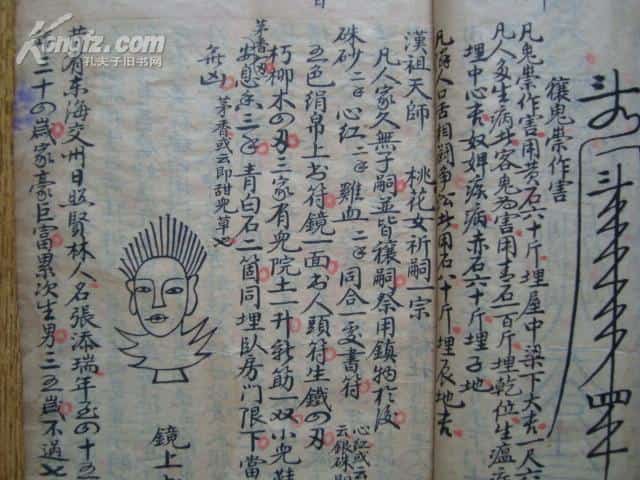 禳鬼祟作害
凡鬼祟作害用黄石六十斤埋屋中梁下大吉一尺六
凡人多生病共客鬼为害用青石一百斤埋乾位生瘟
埋中心吉奴婢疾病赤石六十斤埋子地
凡家人口舌相鬬争公共用石八十斤埋辰地吉
漢祖天師 桃花女祈嗣一宗
凡人家久無子嗣並皆禳嗣祭用鎮物於後
硃砂二千心紅二千雞血二千同合一處書符
心紅或云
云銀硃
五色绢帛上书符鏡一面书人頭符生鐵の刃
朽柳木の刃三家有児院土一升新筯一双小児鞋
茅香
安息香三千青白石二箇同埋臥房门限下當
無凶 茅香或云即甜児草也
鏡上
昔有东海交州日照賢林人名張添瑞年五の十五
二十の歲家豪巨富累次生男三五歲不過
Kongfz.com
孔夫子旧书网